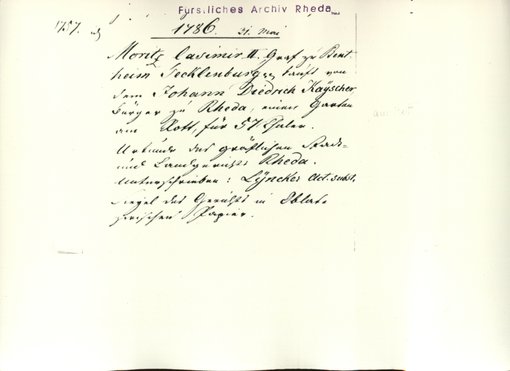 Fürstliches Archiv Rheda
1757.
1786. 21. Mai
Moritz Casimir II. Graf zu Bent-
heim Tecklenburg kauft von
dem Johann Diedrich Kayscher
Bürger zu Rheda, einen Garten
am Rott, für 57 Thaler.
Urkunde des gräflichen Stadt-
und Landgerichts Rheda.
Unterschrieben: Lyncker
Siegel des Gerichts in Oblate
zwischen Papier.